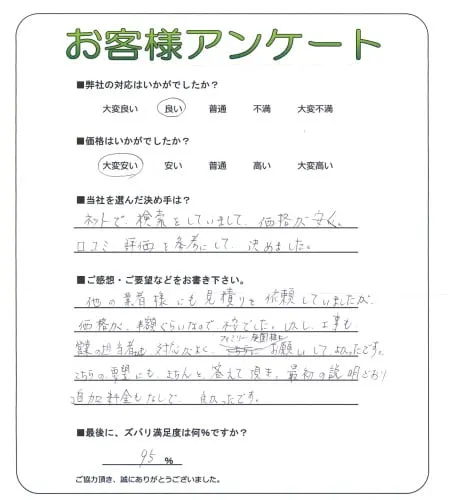 お客様アンケート
■弊社の対応はいかがでしたか？
大変良い 良い 普通 不満 大変不満
■価格はいかがでしたか？
大変安い 安い 普通 高い 大変高い
■当社を選んだ決め手は？
ネットで、検索をしていまして、価格が安く。
口コミ 評価を参考にして、決めました。
■ご感想・ご要望などをお書き下さい。
他の業者様にも見積りを依頼していましたが、
価格が、半額ぐらいなので、不安でした。しかし、工事も
営業の担当者も 対応がよく、 お願いして よかったです。
こちらの要望にも、きちんと 答えて頂き、最初の説明どおり
追加料金もなしで 良かったです。
■最後に、ズバリ満足度は何%ですか？
95 %
ご協力頂き、誠にありがとうございました。